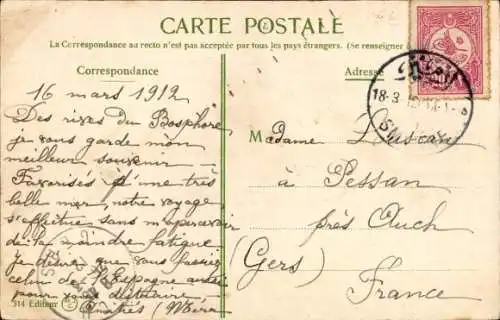 CARTE POSTALE
La Correspondance au recto n'est pas acceptée par tous les pays étrangers. (Se renseigner
Correspondance
Adresse
16 mars 1912
Des rives du Bosphore
je vous garde mon
meilleur souvenir
Favorisés d'une très
belle mer, notre voyage
s'effectue sans m'apercevoir
de la moindre fatigue.
Je que vous fassiez
celui de l'Espagne aussi
pour vous
314 Editeur
18-3
SM
Madame
à Pessan
près Auch
(Gers)
France